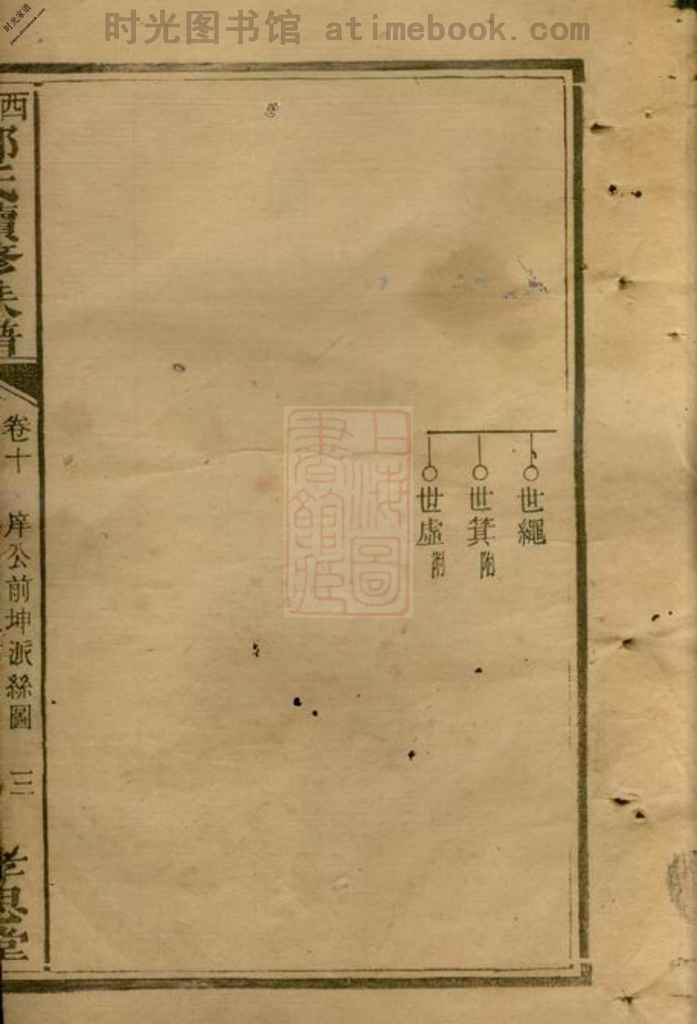 时光图书馆 atimebook.com
时光家谱
世繩
世箕附
世虛附
卷十
庠公前坤派絲圖
三
上海圖書館藏